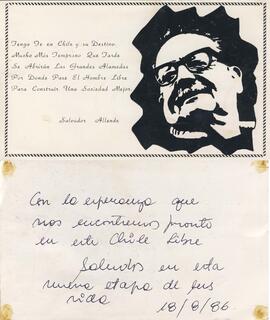 Tengo Fe en Chile y su Destino.
Mucho Más Temprano Que Tarde
Se Abrirán Las Grandes Alamedas
Por Donde Pase El Hombre Libre
Para Construir Una Sociedad Mejor.
Salvador Allende
Con la esperanza que
nos encontremos pronto
en este Chile Libre
Saludos en esta
nueva etapa de sus
vida 18/8/86